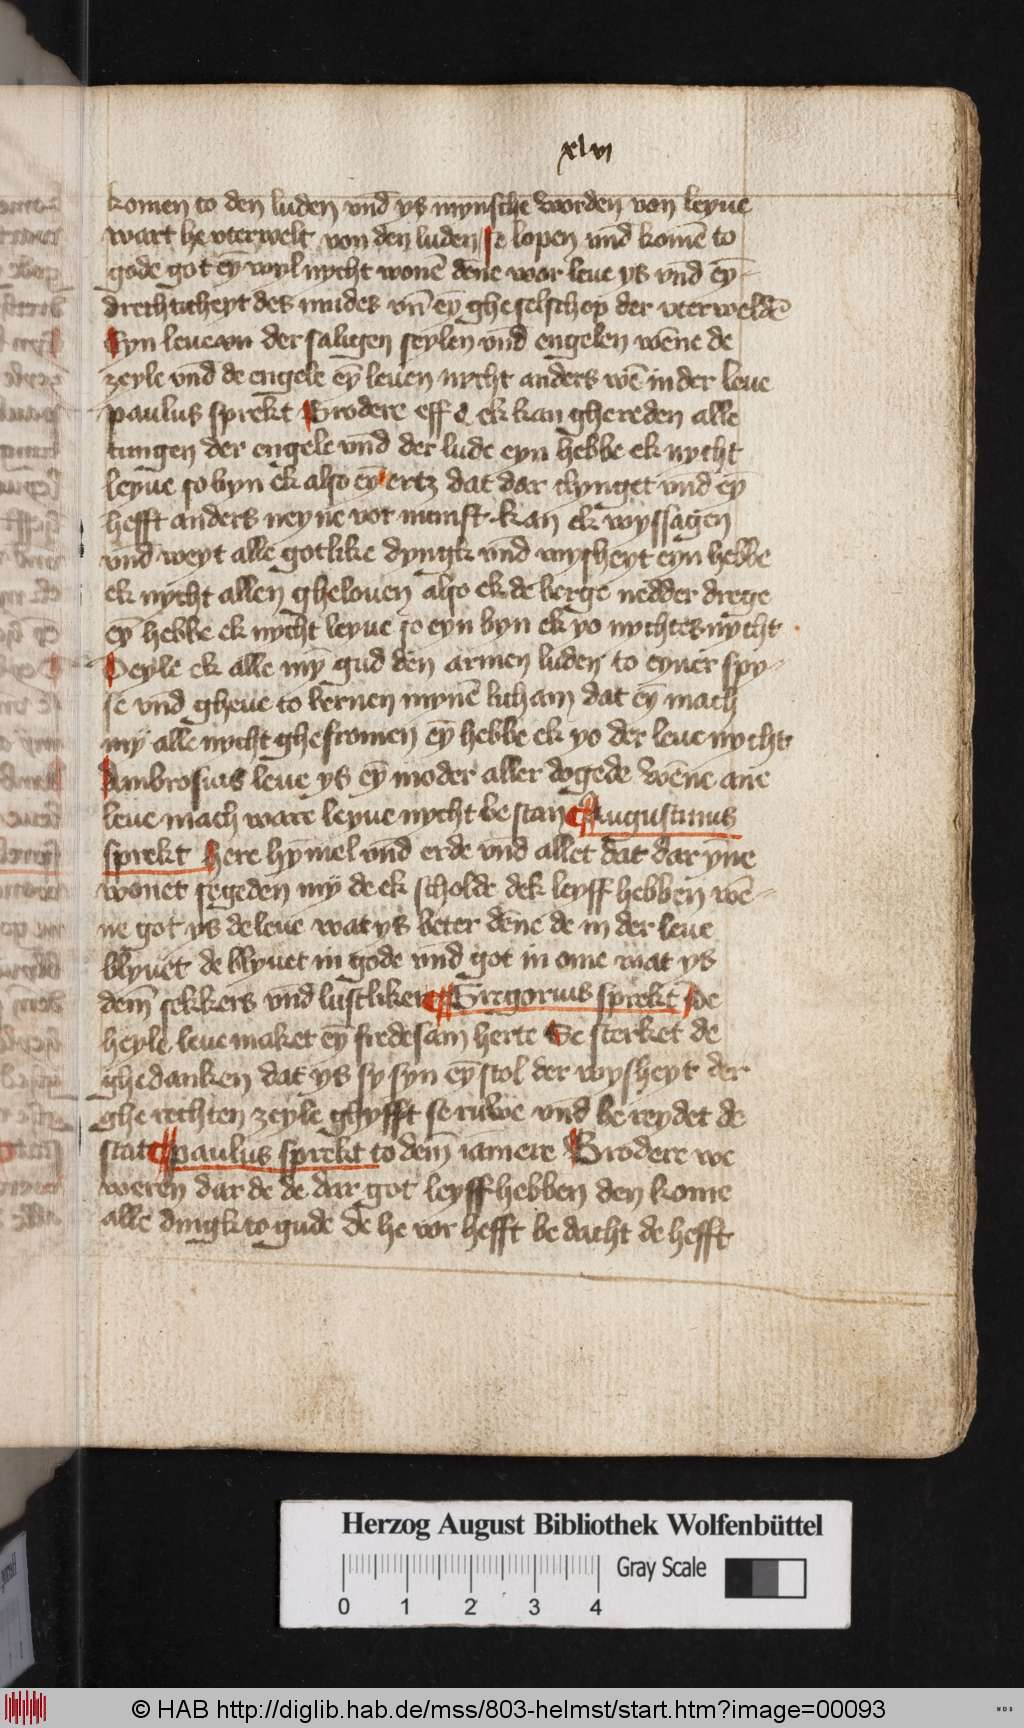 xlvi
komen to den luden vnd ys mynsche worden von leyue
wart he vterwelt von den luden se lopen vnd komē to
gode got eȳ wyl nycht wonē dēne wor leue ys vnd eȳ
drechticheyt des mudes vn̄ eȳ gheselschop der vterweldē
Eyn leuent der saligen seylen vnd engelen wēne de
zeyle vnd de engele eȳ leuen nycht anders wē in der leue
paulus sprekt Brodere eff ek kan ghereden alle
tungen der engele vnd der lude eyn hebbe ek nycht
leyue so byn ek also eȳ ertz dat dar clynget vnd eȳ
hefft anders neyne vornunft kan ek wyssagen
vnd weyt alle gotlike dyngk vnd wysheyt eyn hebbe
ek nycht allen ghelouen also ek de berge nedder drege
eȳ hebbe ek nycht leyue so eyn byn ek yo nychtes nycht
Deyle ek alle mȳ gud den armen luden to eyner spy
se vnd gheue to bernen mynē licham dat eȳ mach
mÿ alle nycht ghefromen eȳ hebbe ek yo der leue nycht
Ambrosius leue ys eȳ moder aller dogede wēne ane
leue mach ware leyue nycht bestan Augustinus
sprekt Here hȳmel vnd erde vnd allet dat dar ȳne
wonet segeden mÿ de ek scholde dek leyff hebben wē
ne got ys de leue wat ys beter dēne de in der leue
blyuet de blyuet in gode vnd got in ome wat ys
dem̄ sekkers vnd lustliker Gregorius sprekt De
heyle leue maket eȳ fredesam herte Se sterket de
ghedanken dat ys sy syn eȳ stol der wysheyt der
gherechten zeyle ghyfft se ruwe vnd bereydet de
stat paulus sprekt to dem̄ iamere Brodere we
weren dar de de dar got leyff hebben den kome
alle dingk to gude de he vor hefft bedacht de hefft
Herzog August Bibliothek Wolfenbüttel
Gray Scale
0 1 2 3 4
© HAB http://diglib.hab.de/mss/803-helmst/start.htm?image=00093